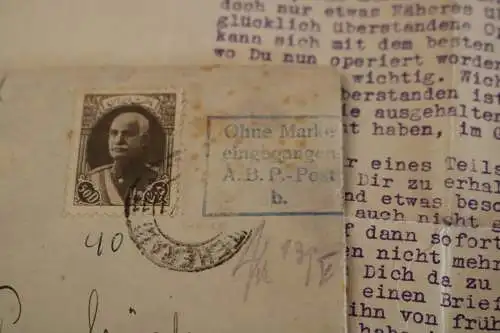 doch nur etwas Näheres ü
glücklich überstandene Op
kann sich mit dem besten
wo Du nun operiert worden
wichtig. Wich
berstanden ist
ie ausgehalten
t haben, im G
r eines Teils
Dir zu erhal
nd etwas besc
auch nicht g
f dann sofort
en nicht mehr
Dich da zu
einen Brief
ihn von früh
habe
Ohne Marke
eingegangen
A.B.P.-Post
b.
40